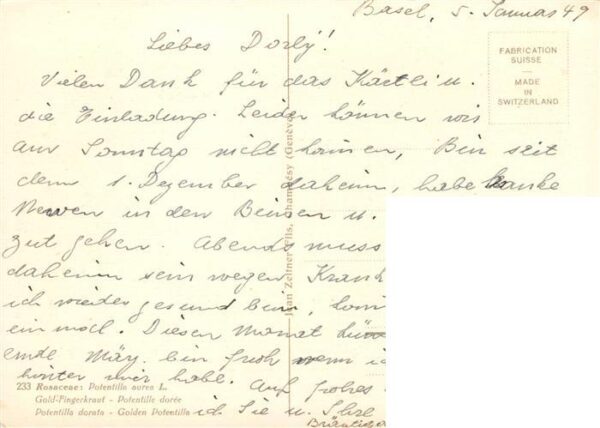 Basel, 5. Januar 49
Liebes Dorly!
Vielen Dank für das Kärtli u.
die Einladung. Leider können wir
am Sonntag nicht kommen, Bin seit
dem 1. Dezember daheim, habe kranke
Nerven in den Beinen u.
gut gehen. Abends muss
daheim sein wegen Krank
ich wieder gesund bin, kom
ein mol. Diesen Monat
ende März. bin froh wenn i
hinter mir habe. Auf frohes
ich Sie u. Ihre
FABRICATION
SUISSE
—
MADE
IN
SWITZERLAND
Jean Zeltner Fils, Chambésy (Genève)
233 Rosaceae: Potentilla aurea L.
Gold-Fingerkraut - Potentille dorée
Potentilla dorata - Golden Potentilla